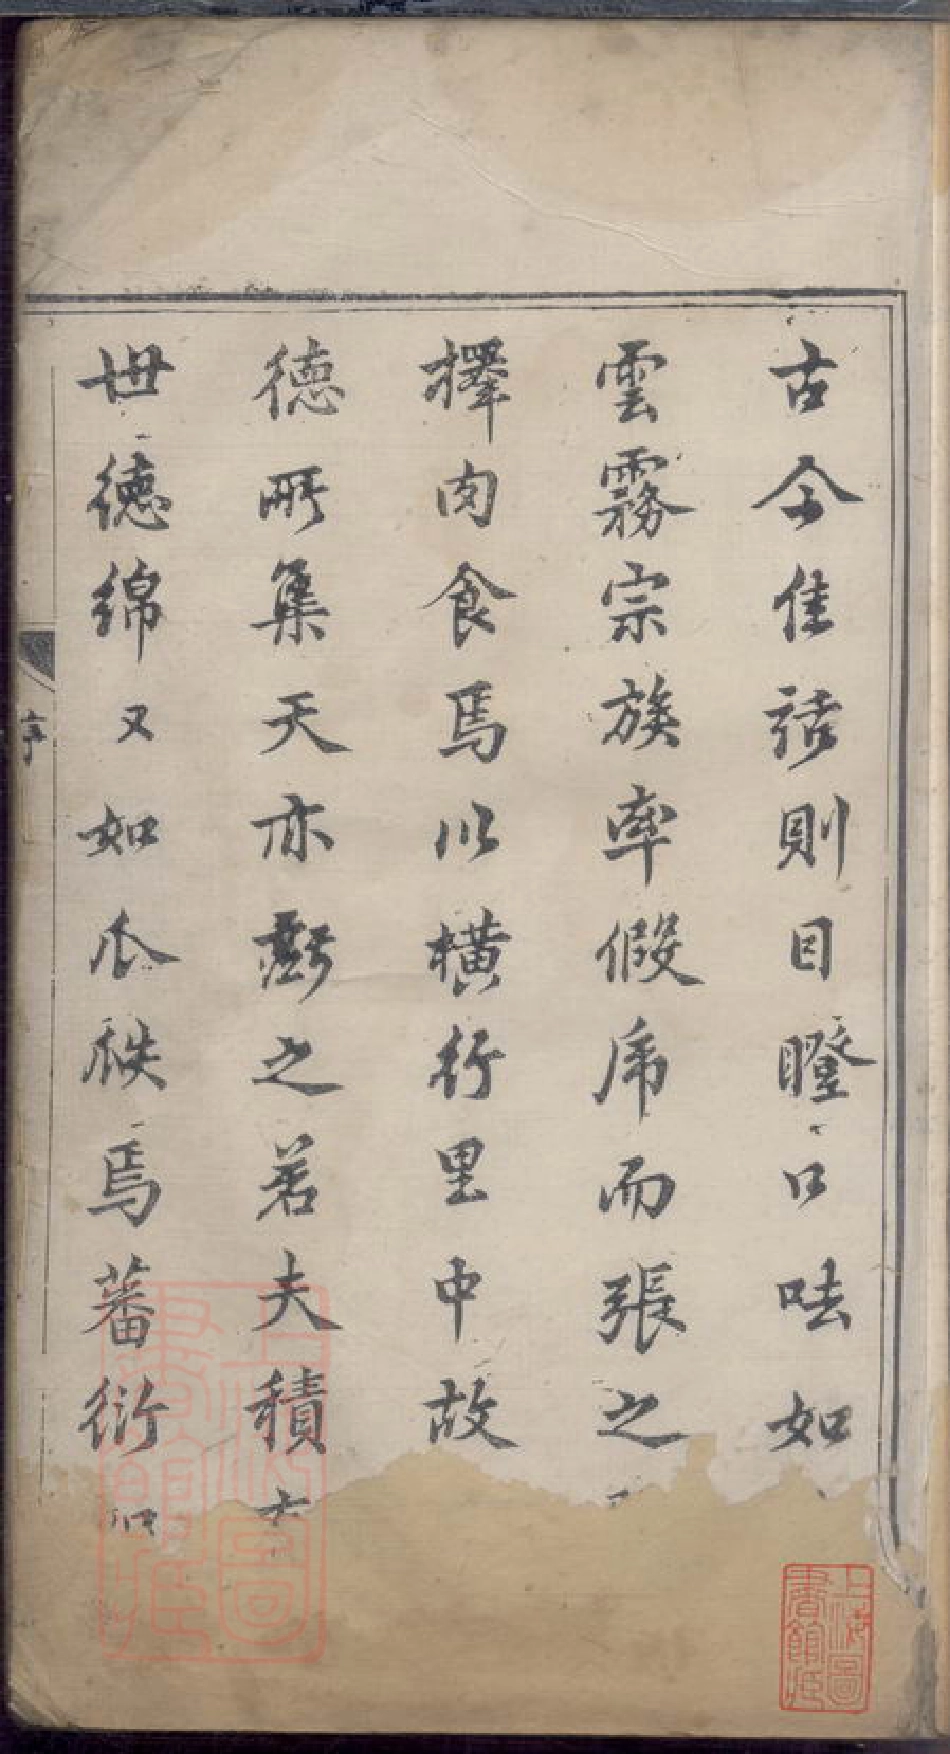 古今佳話則目瞪口呿如
雲霧宗族率假虎而張之
擇肉食焉以橫行里中故
德所集天亦斲之若夫積
世德綿又如瓜瓞焉蕃衍
序
上海圖書館藏
上海圖書館藏